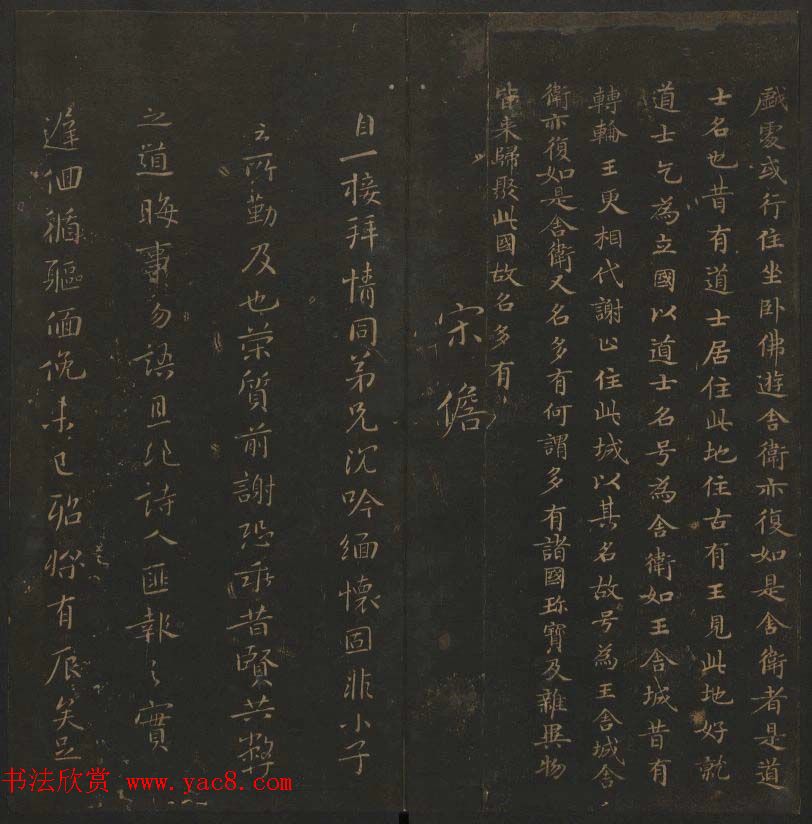 戲處或行住坐卧佛遊舍衛亦復如是舍衛者是道
士名也昔有道士居住此地住古有王見此地好就
道士乞為立國以道士名号為舍衛如王舍城昔有
轉輪王更相代謝止住此城以其名故号為王舍城舍
衛亦復如是舍衛又名多有何謂多有諸國珎寶及雜異物
皆來歸聚此國故名多有
宋儋
自一接拜情同弟兄沉吟緬懷固非小子
之所勤及也榮質前謝恐乖昔賢共弊
之道晦事勿語且非詩人匪報之實
遲佪循軀俛未已昭將有辰矣足
书法欣赏 www.yac8.com